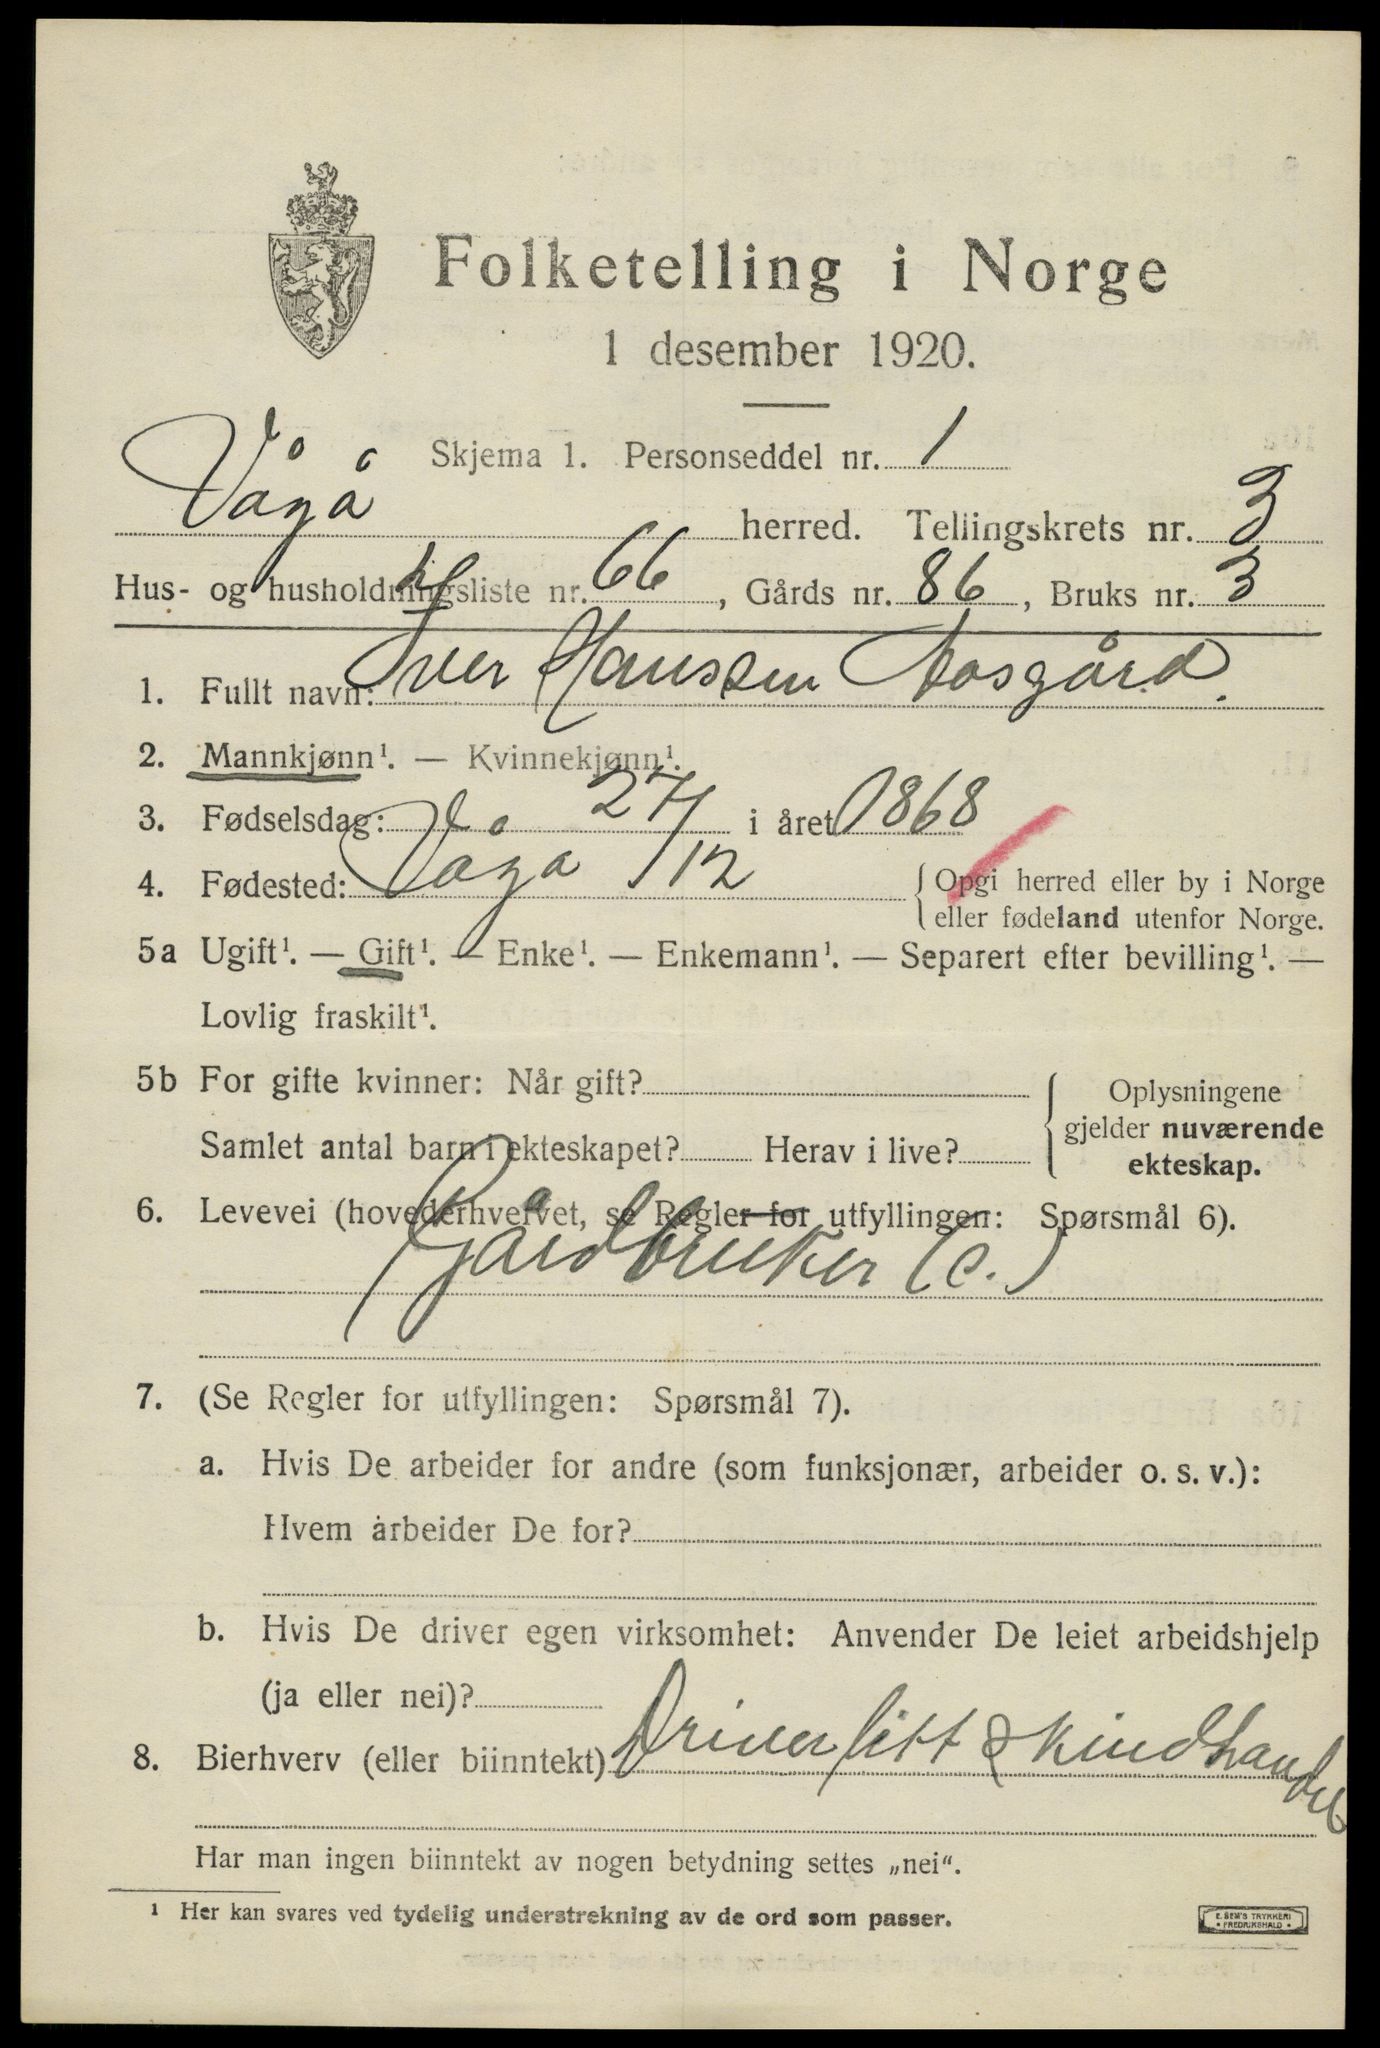 Folketelling i Norge
1 desember 1920.
Skjema 1. Personseddel nr. 1
Vågå herred. Tellingskrets nr. 3
Hus- og husholdningsliste nr. 66, Gårds nr. 86, Bruks nr. 3
1. Fullt navn: Iver Hanssen Aasgård.
2. Mannkjønn¹. — Kvinnekjønn¹.
3. Fødselsdag: 27/12 i året 1868
4. Fødested: Vågå {Opgi herred eller by i Norge
eller fødeland utenfor Norge.
5a Ugift¹. — Gift¹. — Enke¹. — Enkemann¹. — Separert efter bevilling¹. —
Lovlig fraskilt¹.
5b For gifte kvinner: Når gift? {Oplysningene
gjelder nuværende
ekteskap.
Samlet antal barn i ekteskapet? Herav i live?
6. Levevei (hovederhvervet, se Regler for utfyllingen: Spørsmål 6).
Gårdbruker (c.)
7. (Se Regler for utfyllingen: Spørsmål 7).
a. Hvis De arbeider for andre (som funksjonær, arbeider o. s. v.):
Hvem arbeider De for?
b. Hvis De driver egen virksomhet: Anvender De leiet arbeidshjelp
(ja eller nei)?
8. Bierhverv (eller biinntekt) Driver litt skindhandel
Har man ingen biinntekt av nogen betydning settes „nei“.
¹ Her kan svares ved tydelig understrekning av de ord som passer.
E. SEM'S TRYKKERI
• FREDRIKSHALD •